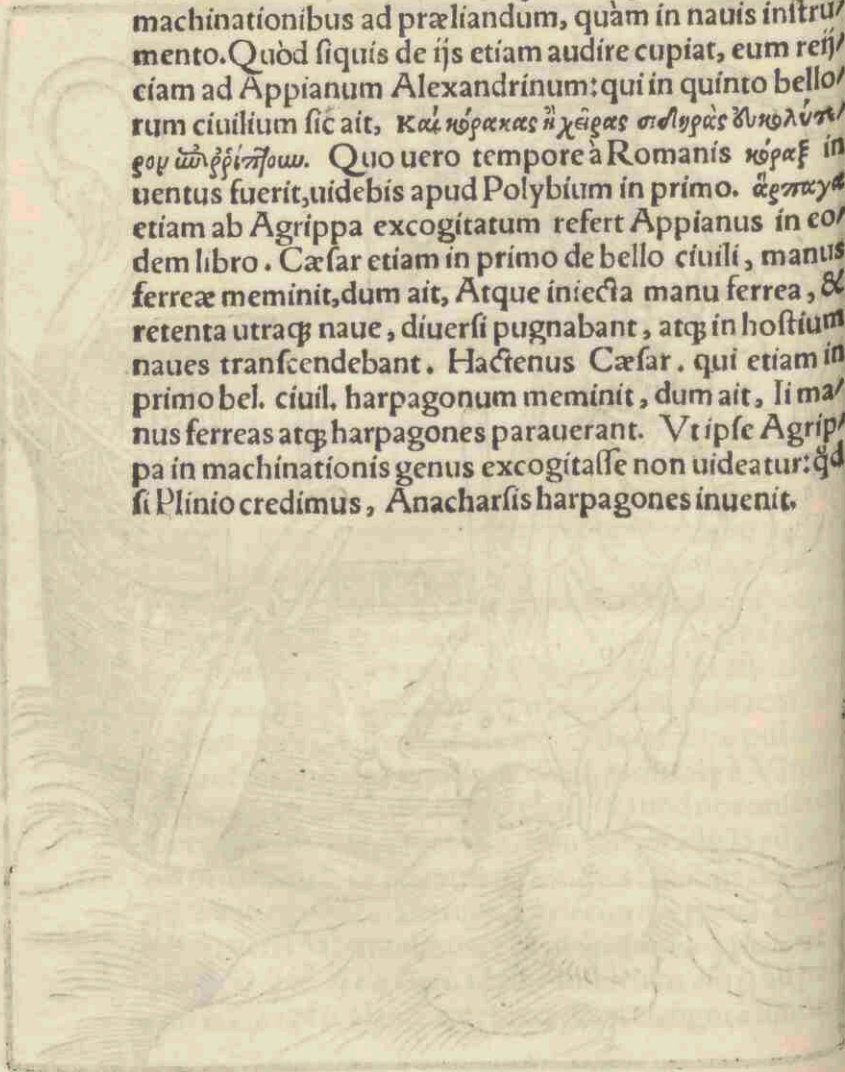 machinationibus ad præliandum, quàm in nauis inſtru/
mento. Quòd ſiquis de ijs etiam audire cupiat, eum reij/
ciam ad Appianum Alexandrinum: qui in quinto bello/
rum ciuilium ſic ait, Καὶ κόρακας ἢ χεῖρας σιδηρὰς
Quo uero tempore à Romanis κόραξ in
uentus fuerit, uidebis apud Polybium in primo. ἅρπαγα
etiam ab Agrippa excogitatum refert Appianus in eo/
dem libro. Cæſar etiam in primo de bello ciuili, manus
ferreæ meminit, dum ait, Atque iniecta manu ferrea, &
retenta utraqꝫ naue, diuerſi pugnabant, atqꝫ in hoſtium
naues tranſcendebant. Hactenus Cæſar. qui etiam in
primo bel. ciuil. harpagonum meminit, dum ait, Ii ma/
nus ferreas atqꝫ harpagones parauerant. Vt ipſe Agrip/
pa in machinationis genus excogitaſſe non uideatur: qd̓
ſi Plinio credimus, Anacharſis harpagones inuenit.